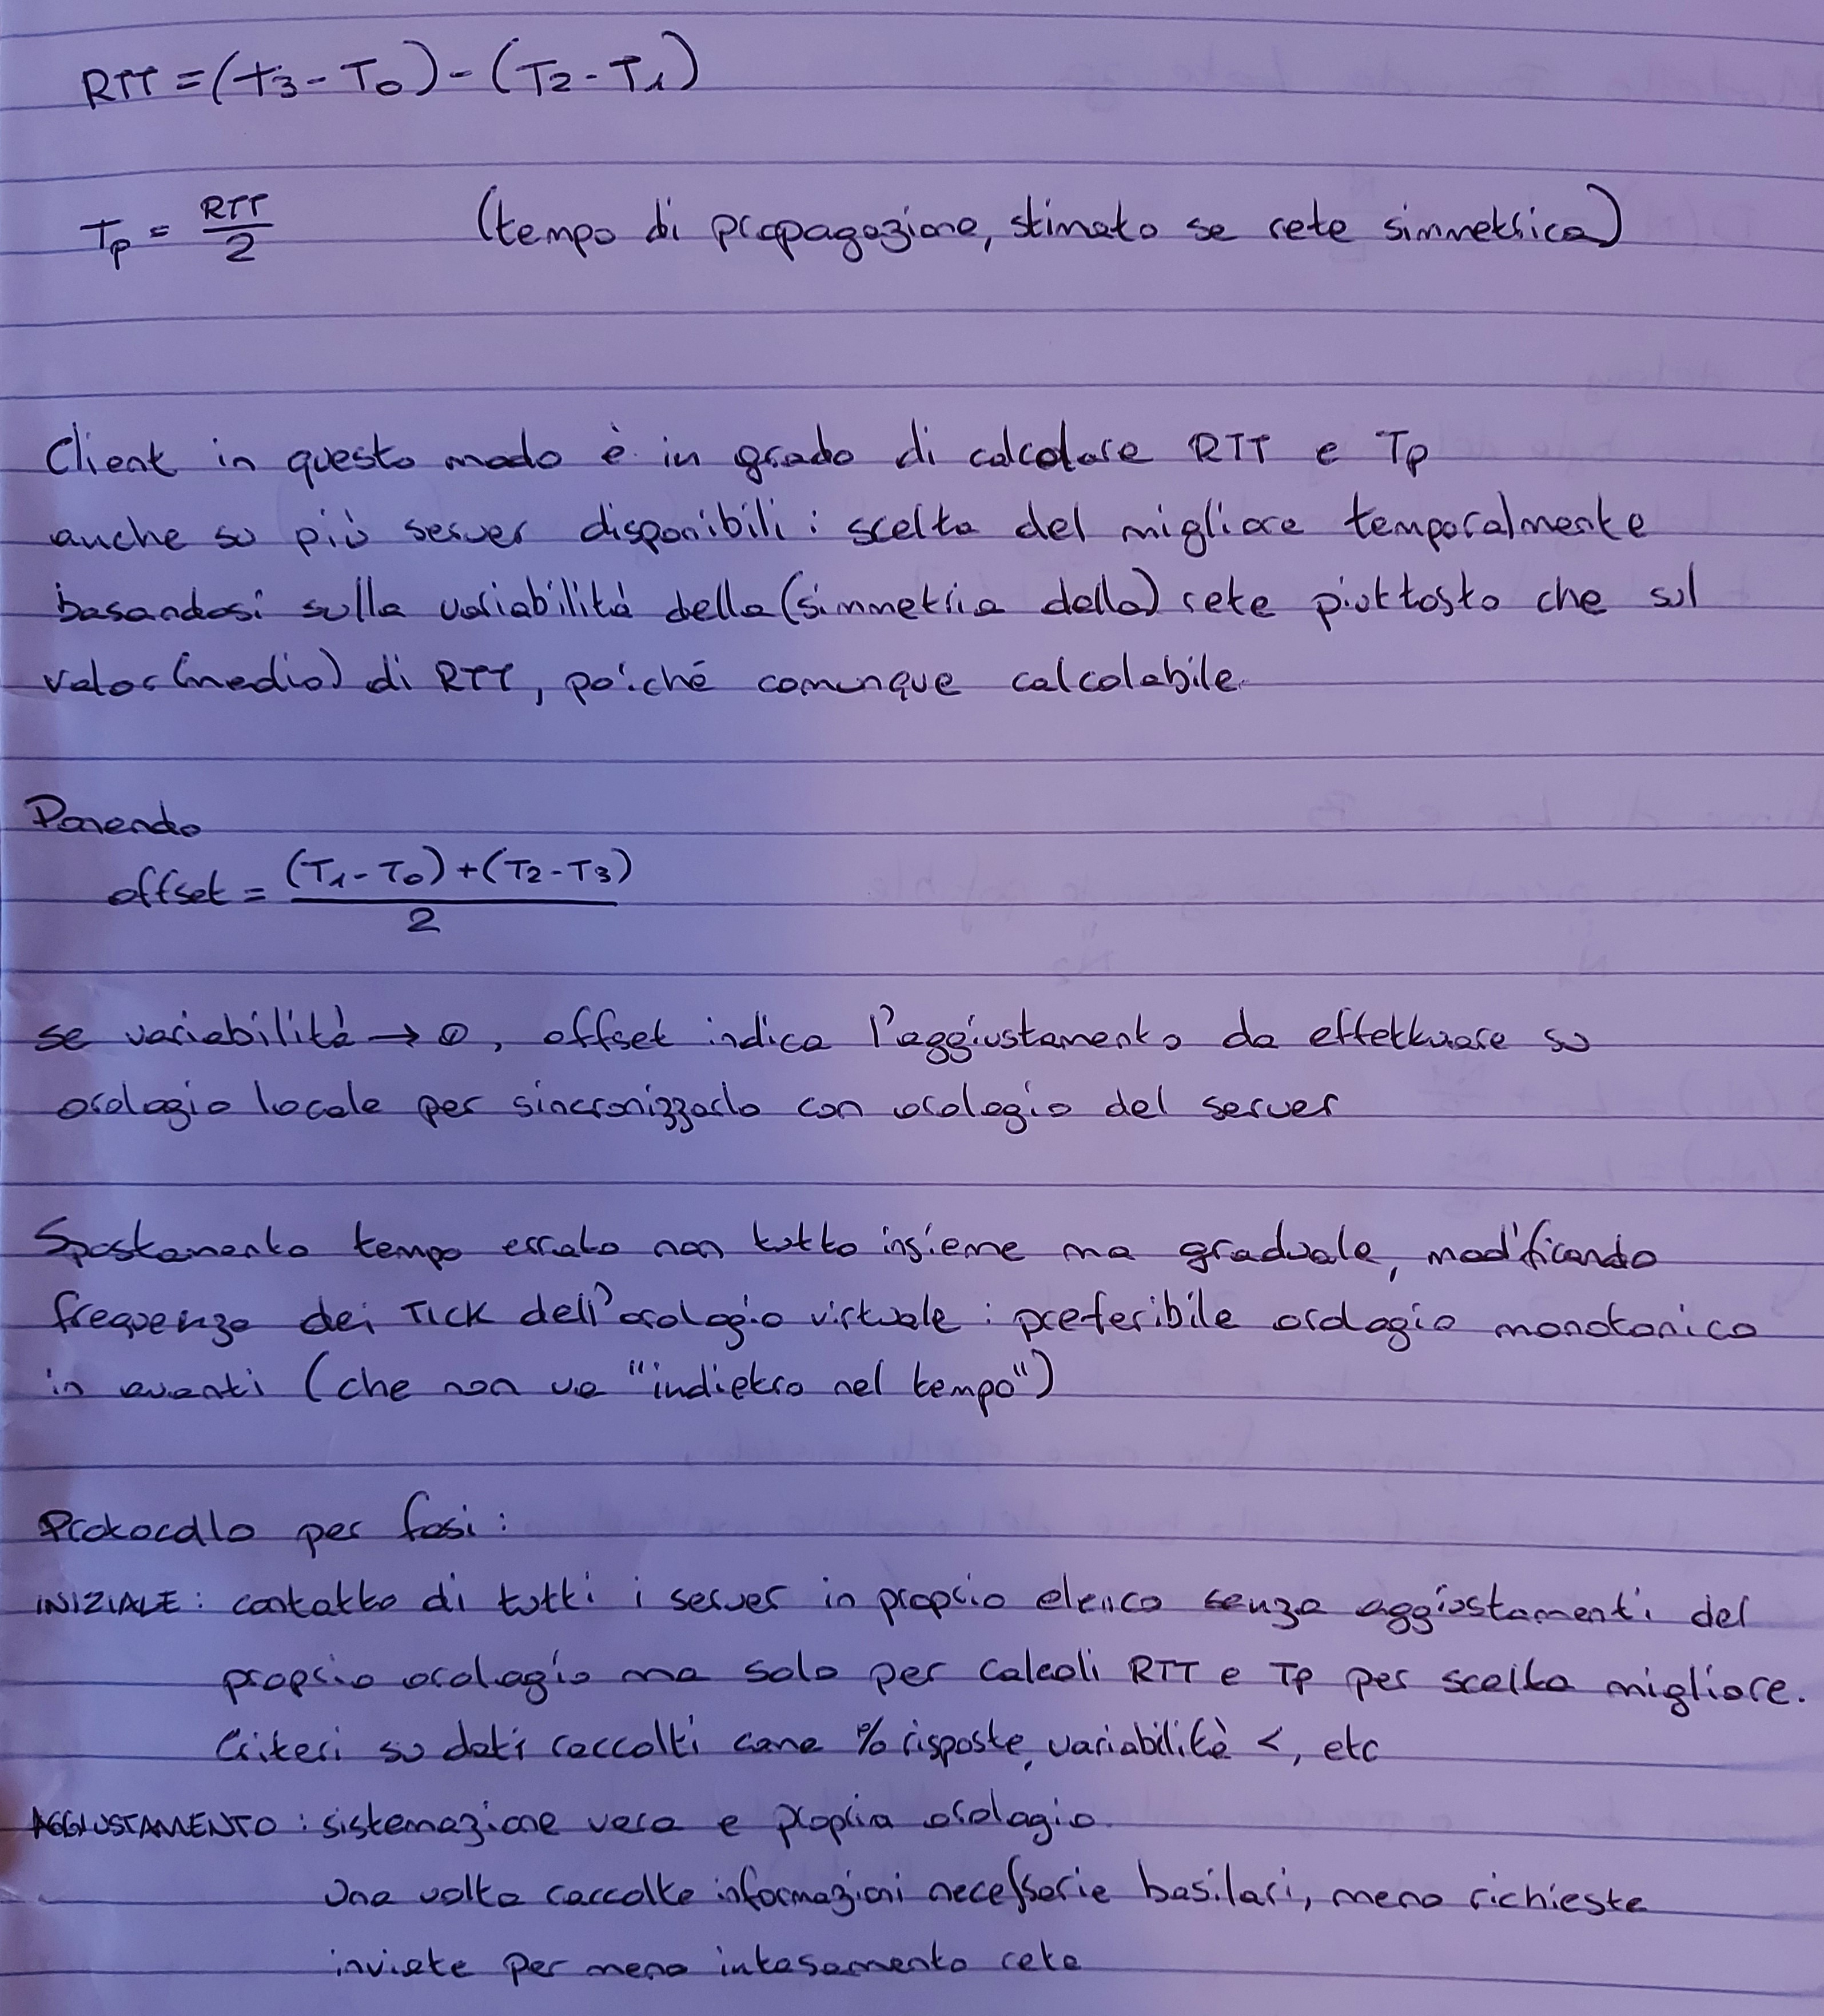 RTT = (T3 - T0) - (T2 - T1)
Tp = RTT/2 (tempo di propagazione, stimato se rete simmetrica)
Client in questo modo è in grado di calcolare RTT e Tp
anche su più server disponibili : scelta del migliore temporalmente
basandosi sulla variabilità della (simmetria della) rete piuttosto che sul
valor (medio) di RTT, poiché comunque calcolabile.
Ponendo
offset = (T1 - T0) + (T2 - T3) / 2
se variabilità → 0, offset indica l'aggiustamento da effettuare su
orologio locale per sincronizzarlo con orologio del server
Spostamento tempo errato non tutto insieme ma graduale, modificando
frequenza dei TICK dell'orologio virtuale : preferibile orologio monotonico
in avanti (che non va "indietro nel tempo")
Protocollo per fasi :
INIZIALE : contatto di tutti i server in proprio elenco senza aggiustamenti del
proprio orologio ma solo per calcoli RTT e Tp per scelta migliore.
Criteri su dati raccolti come % risposte, variabilità <, etc
AGGIUSTAMENTO : sistemazione vera e propria orologio.
Una volta raccolte informazioni necessarie basilari, meno richieste
inviate per meno intasamento rete